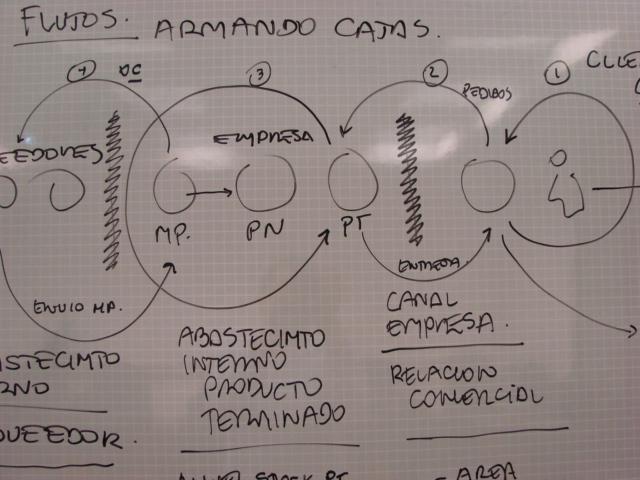 FLUJOS. ARMANDO CAJAS.
4 OC 3 2 1
PEDIDOS
EMPRESA
EEDORES
MP. PN PT
ENTREGA.
ENVIO MP.
CANAL
EMPRESA.
ABASTECIMTO
INTERNO
PRODUCTO
TERMINADO
ASTECIMTO
RNO
RELACION
COMERCIAL
OVEEDOR.
- AREA